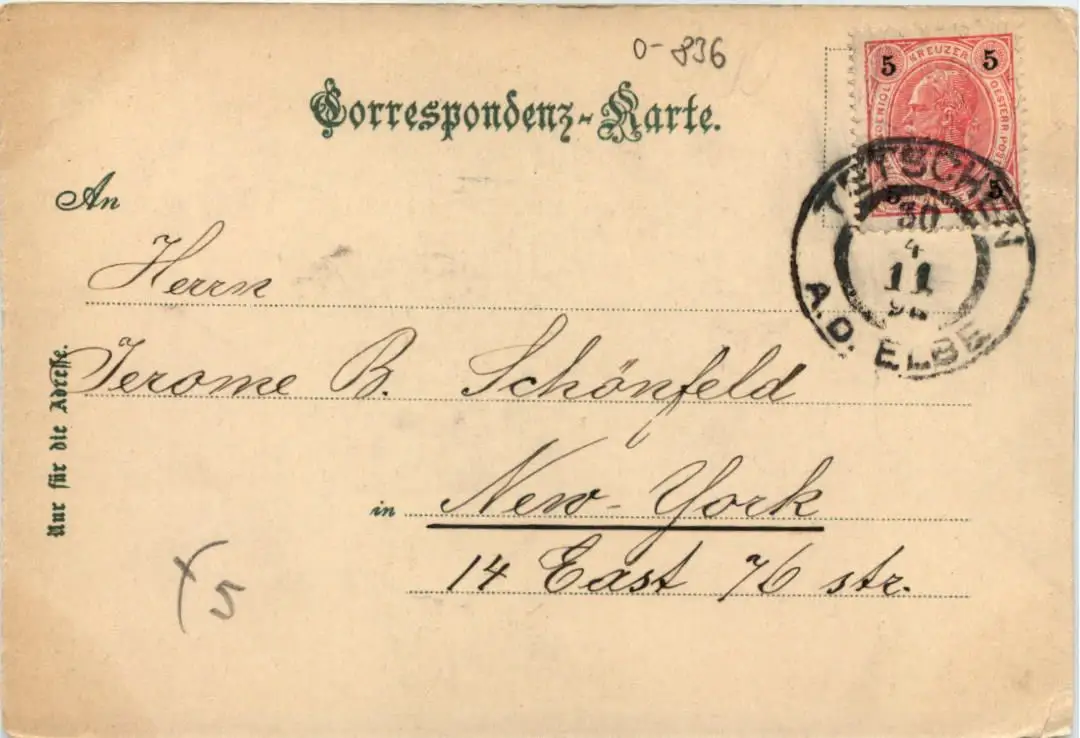 0-836
Correspondenz-Karte.
5 KREUZER 5
OESTERR. POST
5 5
TETSCHEN
30
4
11
A.D. ELBE
An
Herrn
Jerome B. Schönfeld
in New-York
14 East 76 str.
Nur für die Adresse.
5